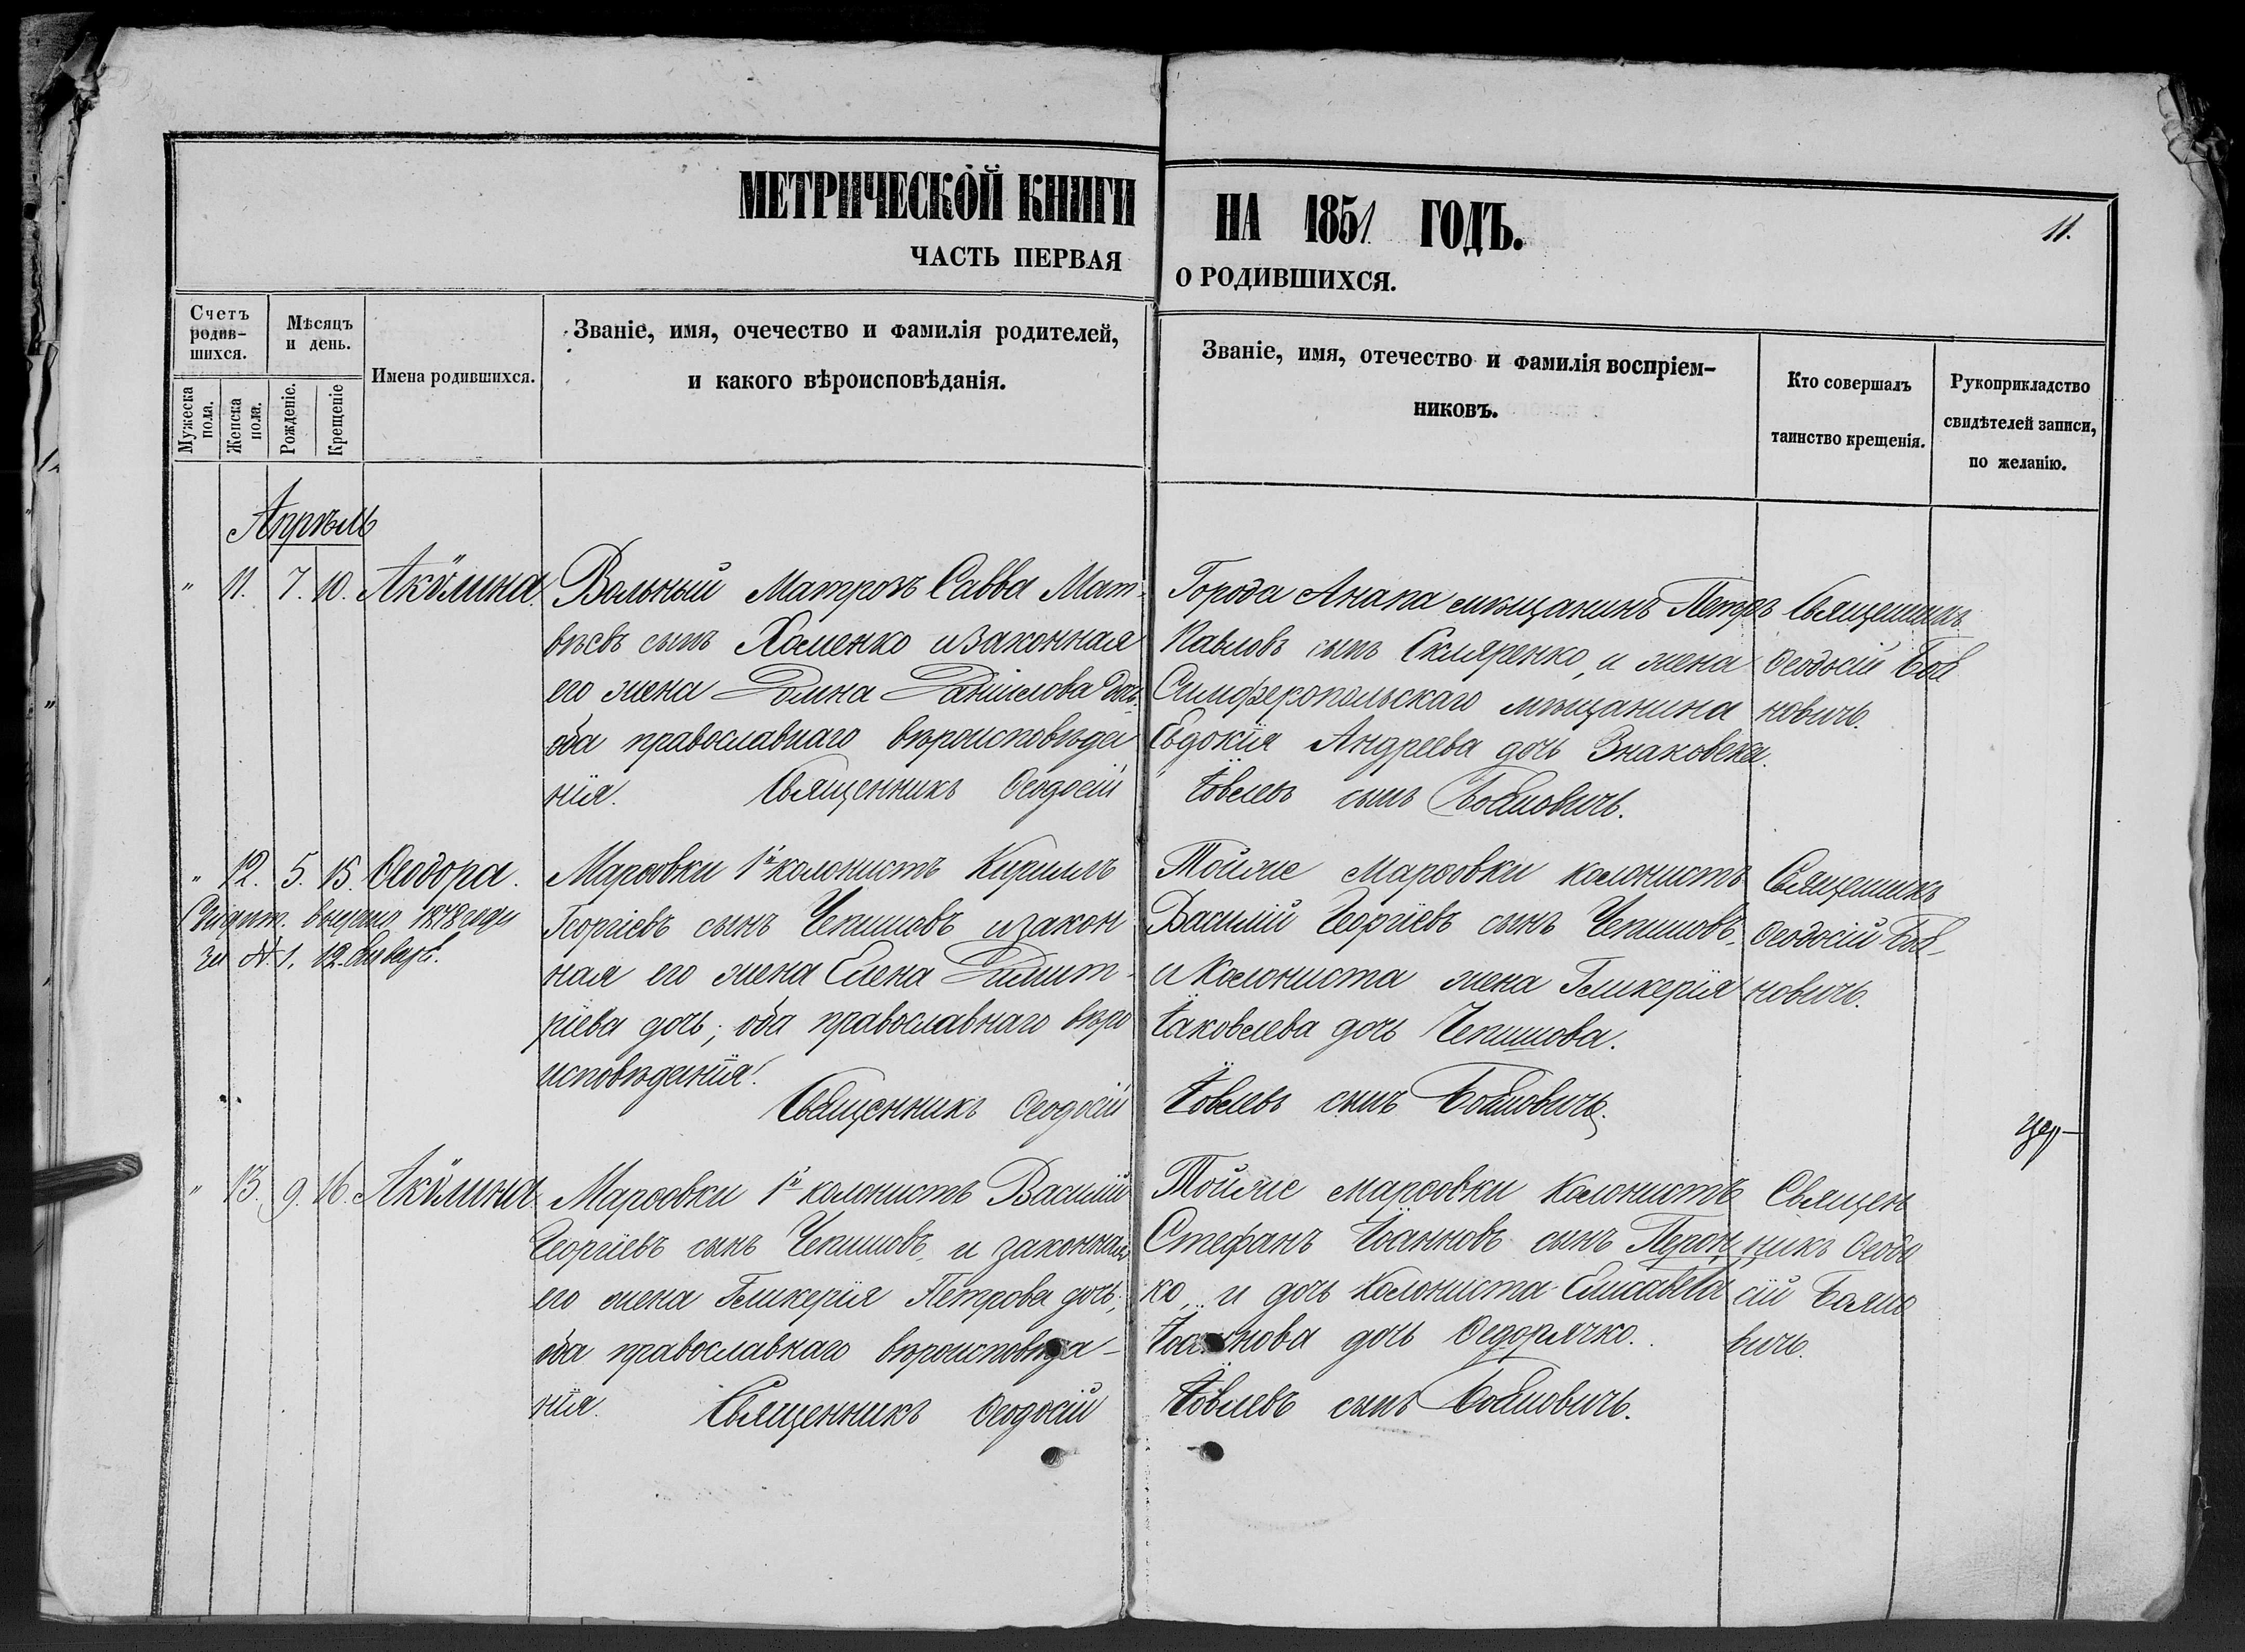 МЕТРИЧЕСКОЙ КНИГИ НА 1851 ГОДЪ.
11.
ЧАСТЬ ПЕРВАЯ О РОДИВШИХСЯ.
Счетъ родив-шихся.
Мужеска пола.
Женска пола.
Мѣсяцъ и день.
Рожденіе.
Крещеніе
Имена родившихся.
Званіе, имя, очечество и фамилія родителей,
и какого вѣроисповѣданія.
Званіе, имя, отечество и фамилія воспріем-
никовъ.
Кто совершалъ
таинство крещенія.
Рукоприкладство
свидѣтелей записи,
по желанію.
Апрѣль
" 11. 7. 10. Акѵлина.
Вольный Матрозъ Савва Мат-
вѣевъ сынъ Хоменко и законная
его жена Домна Даніилова дочь,
оба православнаго вѣроисповѣда
нія. Священникъ Ѳеодосій
Города Анапа мѣщанинъ Петръ
Павловъ сынъ Скляренко, и жена
Симферопольскаго мѣщанина
Евдокія Андреева дочь
Іовлевъ сынъ Бойновичь.
Священникъ
Ѳеодосій Бой
новичь.
" 12. 5. 15. Ѳеодора.
1878 года
за № 1. 12. Января.
Марфовки колонистъ Кириллъ
Георгіевъ сынъ Чепишовъ и закон
ная его жена Елена Димит-
ріева дочь; оба православнаго вѣро
исповѣданія.
Священникъ Ѳеодосій
Тойже Марфовки колонистъ
Василій Георгіевъ сынъ Чепишовъ,
и Колониста жена Гликерія
Іаковлева дочь Чепишова.
Іовлевъ сынъ Бойновичь.
Священникъ
Ѳеодосій Бой-
новичь.
" 13. 9. 16. Акѵлина.
Марфовки колонистъ Василій
Георгіевъ сынъ Чепишовъ, и законная
его жена Гликерія Петрова дочь;
оба православнаго вѣроисповѣда-
нія. Священникъ Ѳеодосій
Тойже марфовки Колонистъ
Стефанъ Іоанновъ сынъ
ко, и дочь Колониста Елисавета
Іоаннова дочь Ѳедорячко.
Іовлевъ сынъ Бойновичь.
Священ
никъ Ѳеодо
сій Бойно
вичь.